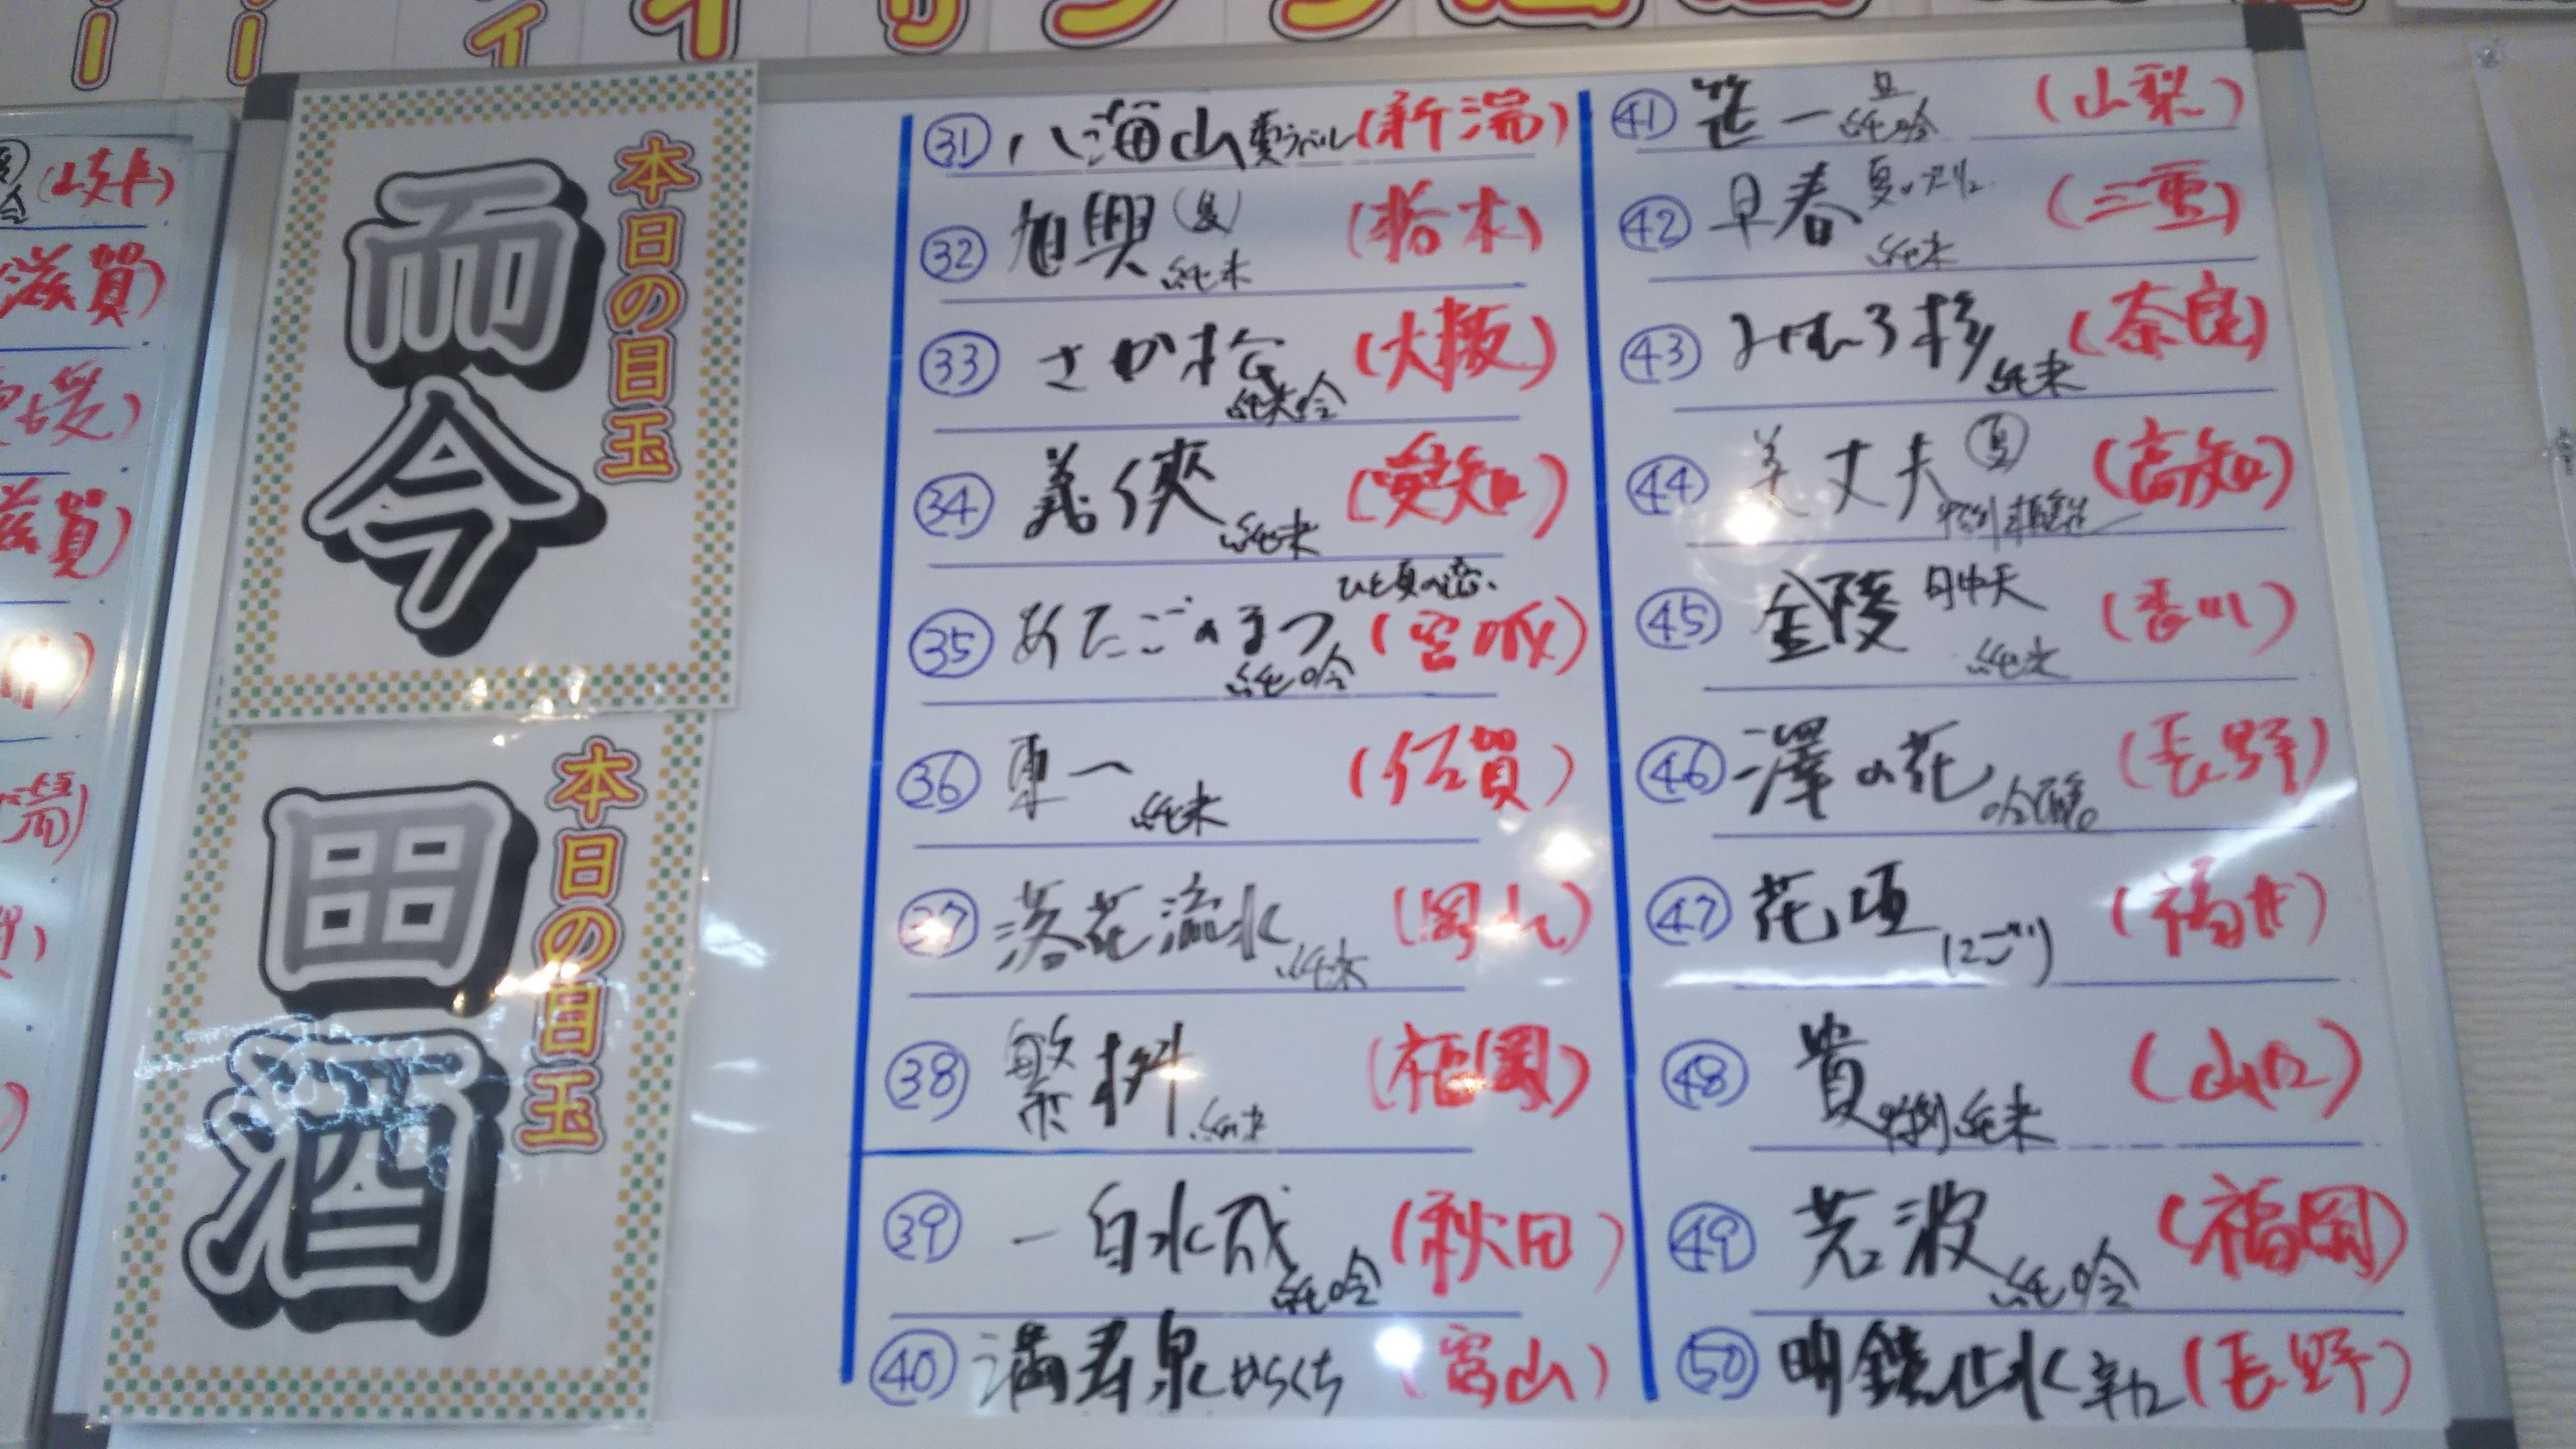 本日の目玉
而今
本日の目玉
田酒
㉛ 八海山 夏ラベル (新潟)
㉜ 旭興 (夏) 純米 (栃木)
㉝ さか松 純米吟 (大阪)
㉞ 義侠 純米 (愛知)
㉟ あたごのまつ ひと夏の恋 純吟 (宮城)
㊱ 東一 純米 (佐賀)
㊲ 落花流水 純米 (岡山)
㊳ 繁桝 純米 (福岡)
㊴ 一白水成 純吟 (秋田)
㊵ 満寿泉 からくち (富山)
㊶ 笹一 純吟 (山梨)
㊷ 早春 夏の 純米 (三重)
㊸ みむろ杉 純米 (奈良)
㊹ 美丈夫 夏 (高知)
㊺ 金陵 月中天 純米 (香川)
㊻ 澤の花 吟醸 (長野)
㊼ 花垣 (にごり) (福井)
㊽ 貴 特別純米 (山口)
㊾ 荒波 純吟 (福岡)
㊿ 明鏡止水 辛口 (長野)
(滋賀)
滋賀)